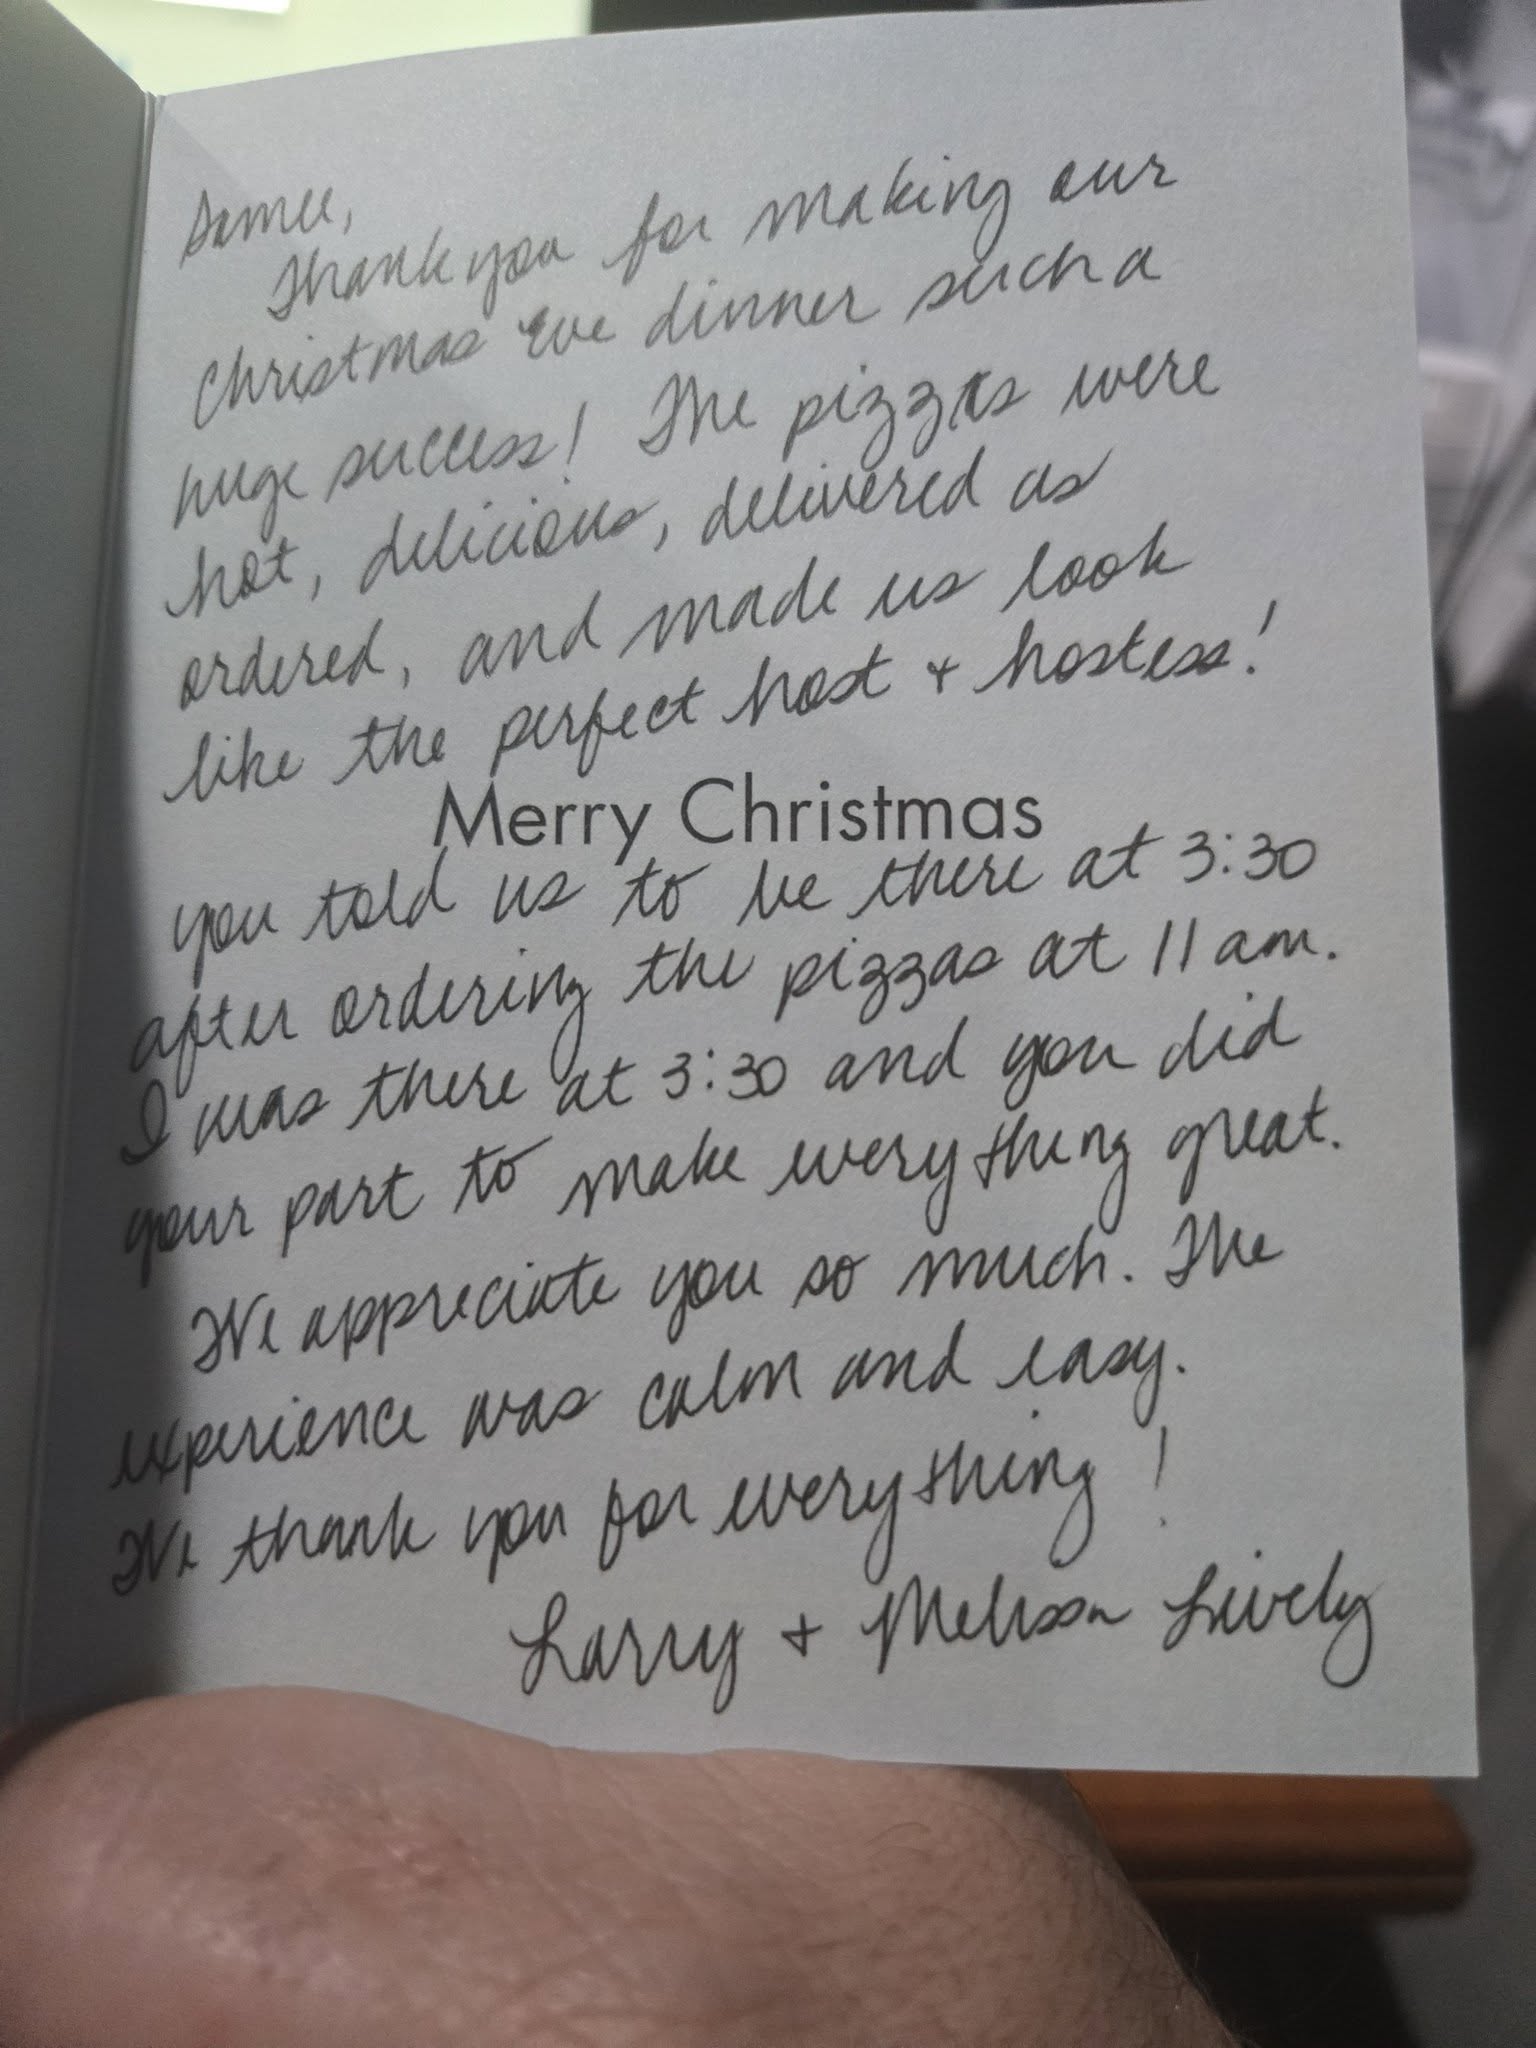 Thank you for making our
Christmas Eve dinner such a
huge success! The pizzas were
hot, delicious, delivered as
ordered, and made us look
like the perfect host + hostess!
Merry Christmas
you told us to be there at 3:30
after ordering the pizzas at 11 am.
I was there at 3:30 and you did
your part to make everything great.
We appreciate you so much. The
experience was calm and easy.
We thank you for everything!
Larry + Melissa Lively